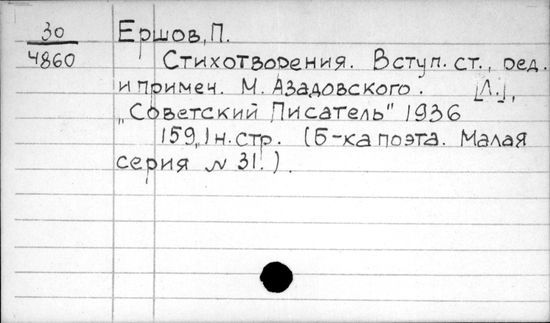 30 Ершов, П.
4860 Стихотворения. Вступ. ст., ред.
и примеч. М. Азадовского. [Л.],
„Советский Писатель" 1936
159, 1 н. стр. (Б-ка поэта. Малая
серия № 31.).